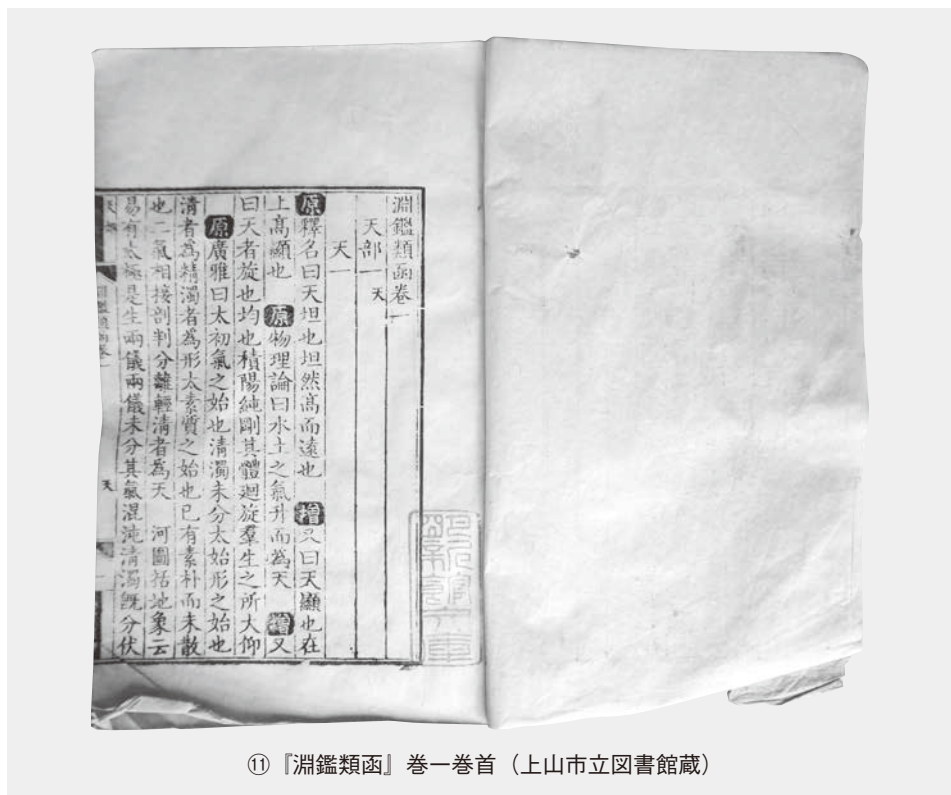 淵鑑類函卷一
天部一 天
天一
原釋名曰天坦也坦然高而遠也 增又曰天顯也在
上高顯也 原物理論曰水土之氣升而為天 增又
曰天者旋也均也積陽純剛其體迴旋羣生之所大仰
原廣雅曰太初氣之始也清濁未分太始形之始也
清者為精濁者為形太素質之始也已有素朴而未散
也二氣相接剖判分離輕清者為天 河圖括地象云
易有太極是生兩儀兩儀未分其氣混沌清濁既分伏
明新館文庫
⑪『淵鑑類函』巻一巻首（上山市立図書館蔵）